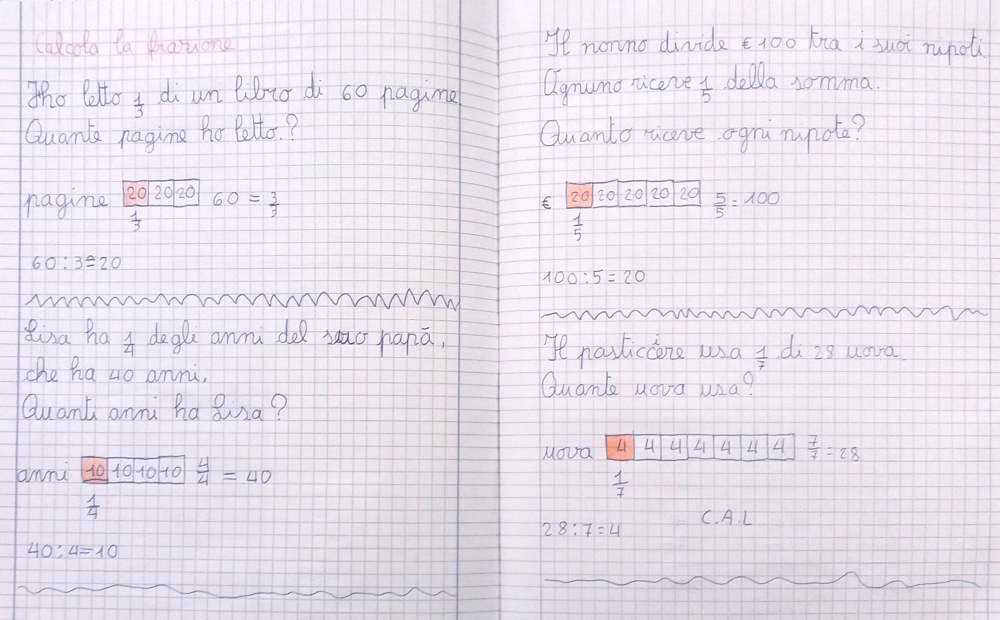 Calcola la frazione
Ho letto 1/3 di un libro di 60 pagine.
Quante pagine ho letto.?
pagine 20 20 20 60 = 3/3
1/3
60:3=20
Lisa ha 1/4 degli anni del suo papà,
che ha 40 anni.
Quanti anni ha Lisa?
anni 10 10 10 10 4/4 = 40
1/4
40:4=10
Il nonno divide € 100 tra i suoi nipoti.
Ognuno riceve 1/5 della somma.
Quanto riceve ogni nipote?
€ 20 20 20 20 20 5/5 = 100
1/5
100:5=20
Il pasticcere usa 1/7 di 28 uova.
Quante uova usa?
uova 4 4 4 4 4 4 4 7/7 = 28
1/7
C.A.L
28:7=4